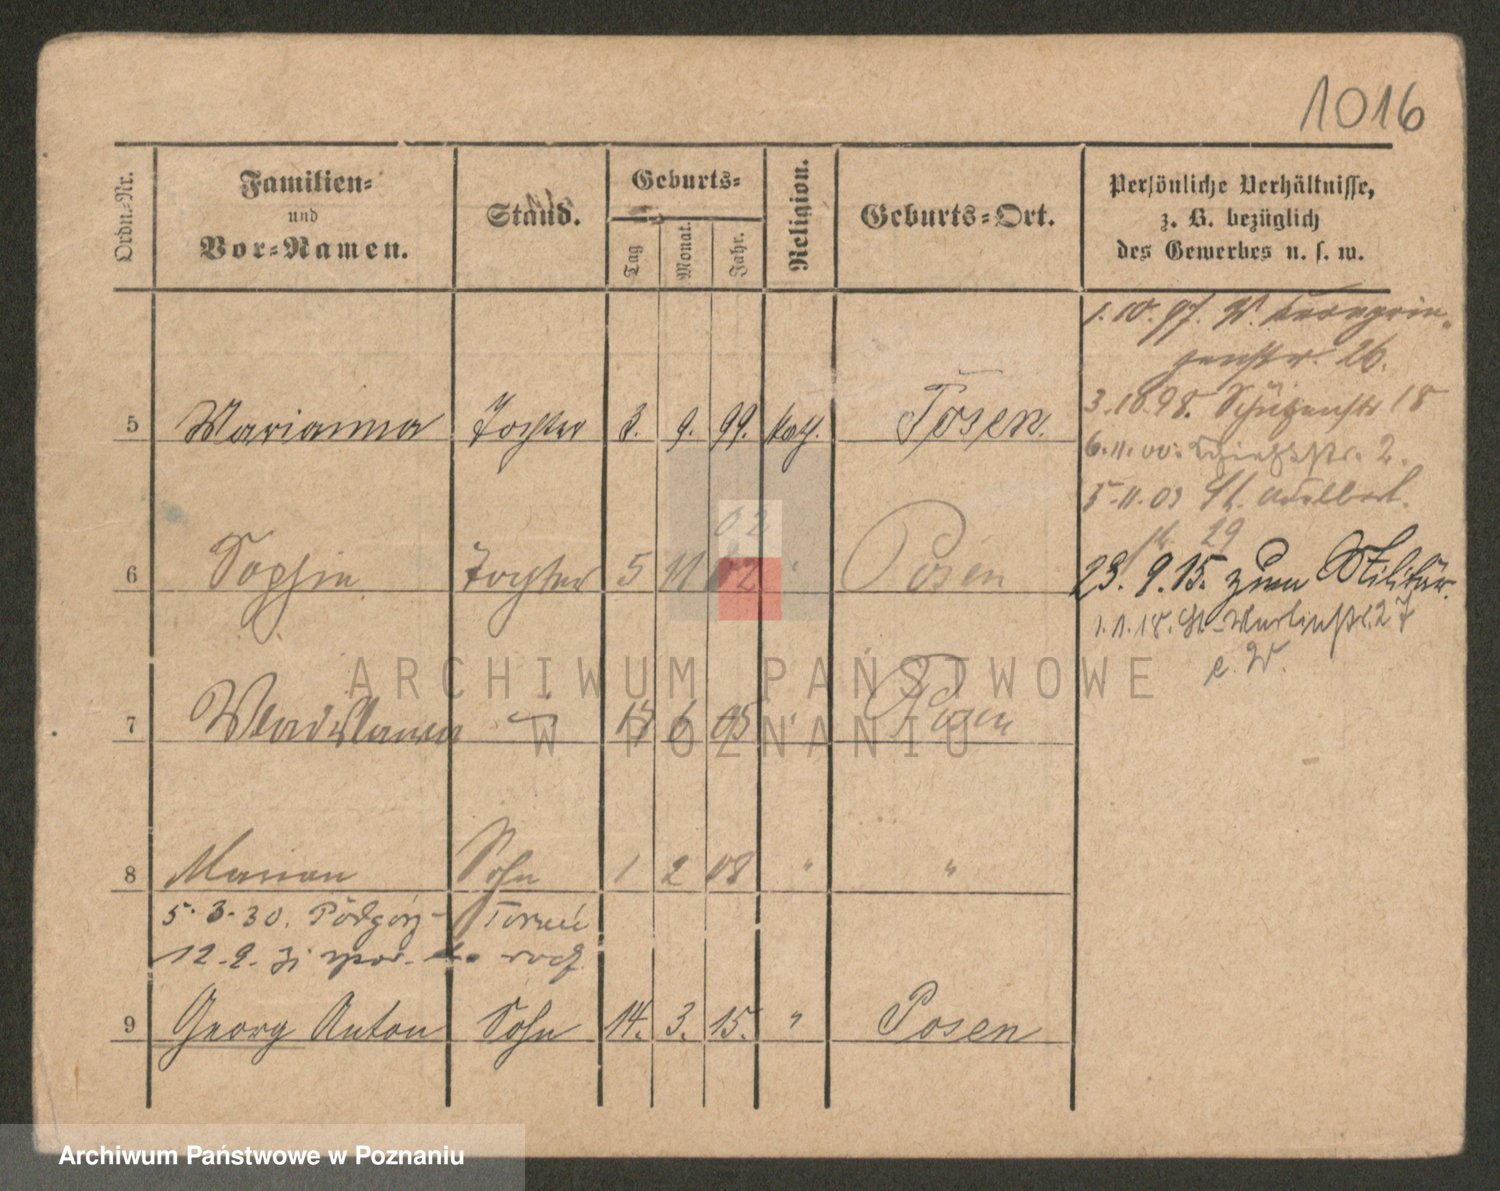 1016
Ordn.-Nr.
Familien-
und
Vor-Namen.
Stand.
Geburts-
Tag
Monat.
Jahr.
Religion.
Geburts-Ort.
Persönliche Verhältnisse,
z. B. bezüglich
des Gewerbes u. s. w.
1.10.97. W.
26.
3.10.98. Schützenstr 18
5 Marianna Tochter 8. 9. 99. kath. Posen.
6.11.00. 2.
5.11.03 St. Adalbert
29
02
6 Sophie Tochter 5 11 02 " Posen
23. 9. 15. zum Militär.
1.1.18. St-Martinstr. 27
e. W.
ARCHIWUM PAŃSTWOWE
W POZNANIU
7 Wladislawa " 6 05 " Posen
8 Marian Sohn 1 2 08 " "
5.3.30. Podgórz - Toruń
12.9.
9 Georg Anton Sohn 14. 3. 15. " Posen
Archiwum Państwowe w Poznaniu